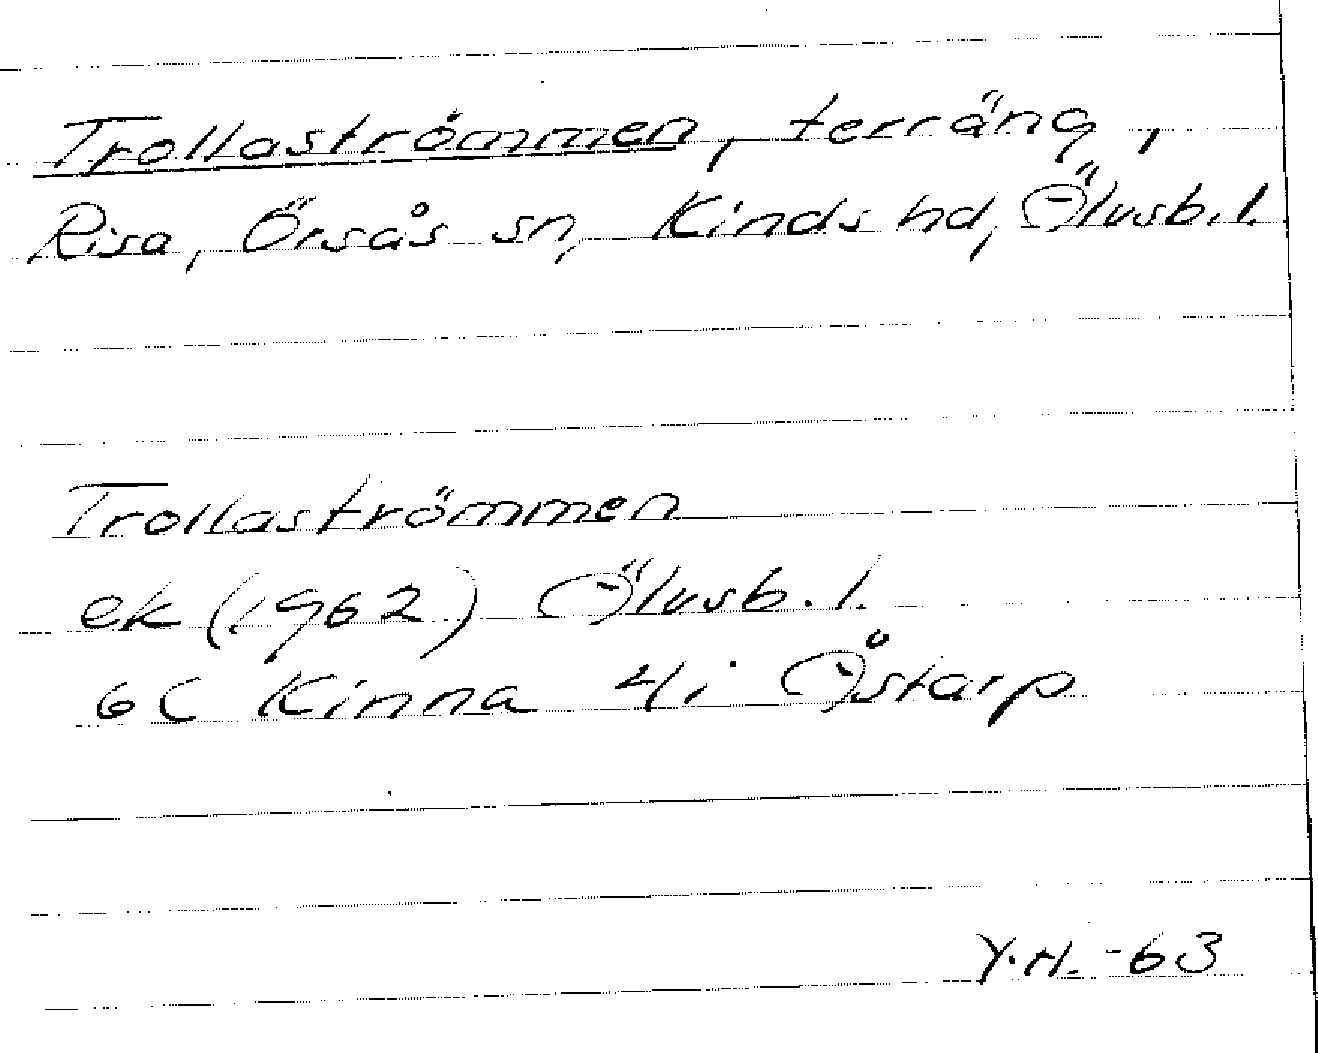 Trollaströmmen, terräng,
Risa, Örsås sn, Kinds hd, Älvsb. l.
Trollaströmmen
ek (1962) Älvsb. l.
6C Kinna 4i Åstarp
Y.H. -63